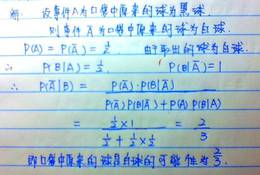 解: 设事件A为口袋中原来的球为黑球
则事件Ā为口袋中原来的球为白球.
P(A) = P(Ā) = 1/2. 由于取出的球为白球.
∴ P(B|A) = 1/2 P(B|Ā) = 1
∴ P(Ā|B) = P(Ā)·P(B|Ā) / P(Ā)P(B|Ā) + P(A)P(B|A)
= 1/2 × 1 / 1/2 + 1/2 × 1/2 = 2/3
即口袋中原来的球是白球的可能性为 2/3.